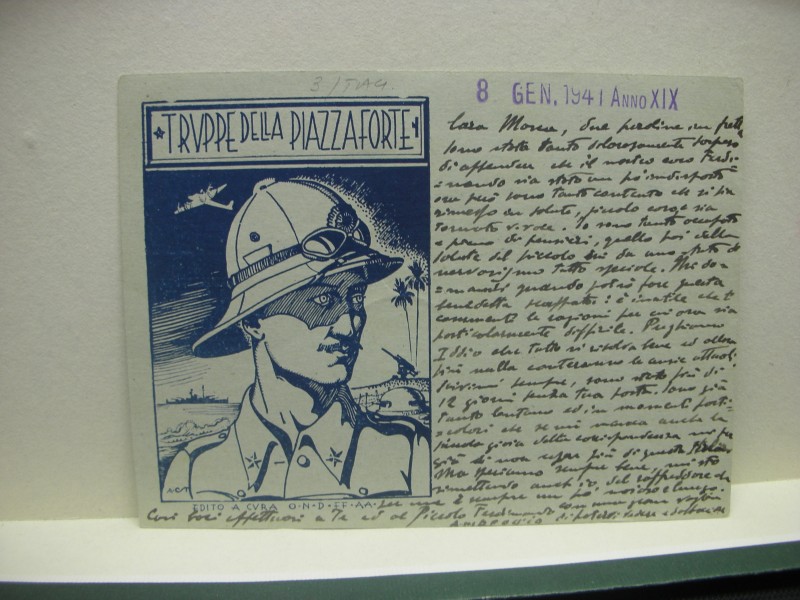 3/TAG
8 GEN. 1941 ANNO XIX
TRVPPE DELLA PIAZZAFORTE
Cara Moma, due paroline in fretta
sono stato tanto dolorosamente sorpreso
di apprendere che il nostro caro Ferdi=
nando sia stato un pò indisposto
ora però sono tanto contento che si sia
rimesso in salute, piccolo corpo sia
tornato vivace. Io sono tanto occupato
e pieno di pensieri, quello poi della
salute del piccolo mi da uno stato di
nervosismo tutto speciale. Mi do=
mandi quando potrò fare questa
benedetta scappata: è inutile che ti
commenti le ragioni per cui ora sia
particolarmente difficile. Preghiamo
Iddio che tutto si risolva bene ed allora
più nulla conteranno le ansie attuali.
Scrivimi sempre, sono stato più di
12 giorni senza tua posta. Sono già
tanto lontano ed in momenti parti=
colari che se mi manca anche la
piccola gioia della corrispondenza mi par
già di non esser più di questo
Ma speriamo sempre bene, mi sto
rimettendo anch'io del raffreddore che
per me è sempre un pò noioso e lungo.
EDITO A CVRA O.N.D.FF.AA.
Cari baci affettuosi a Te ed al Piccolo Ferdinando con una gran voglia
di potervi vedere e